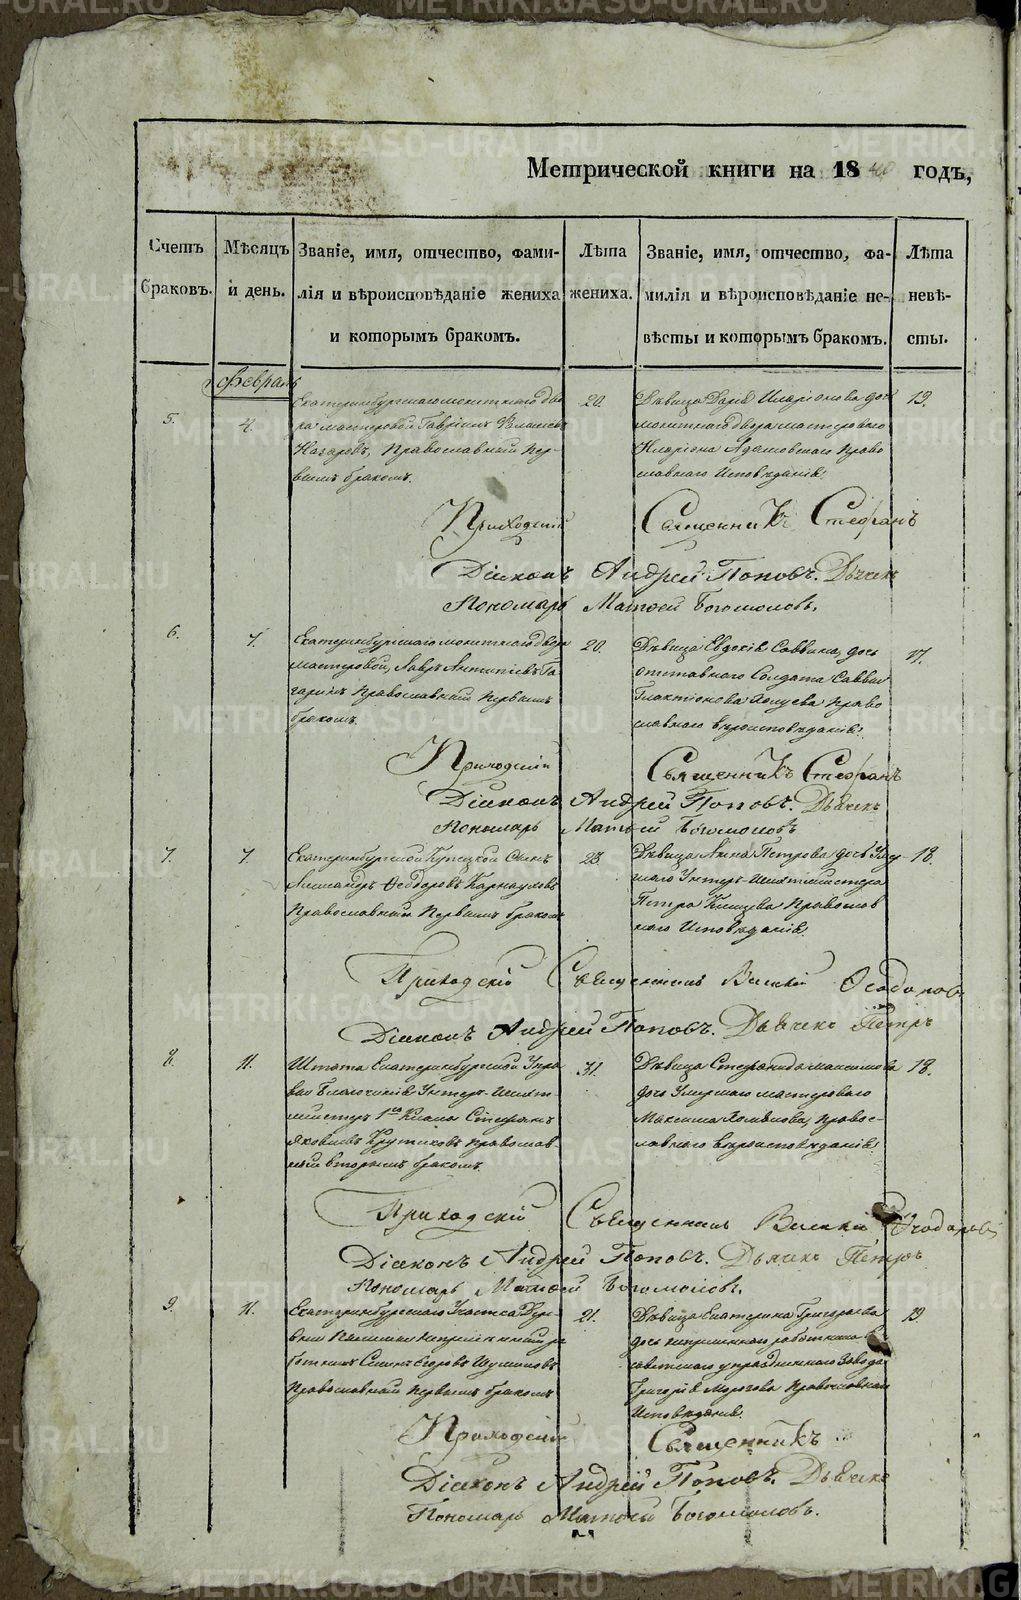 Метрической книги на 1840 годъ,
Счетъ браковъ.
Мѣсяцъ и день.
Званіе, имя, отчество, фами-
лія и вѣроисповѣданіе жениха
и которымъ бракомъ.
Лѣта жениха.
Званіе, имя, отчество, фа-
милія и вѣроисповѣданіе не-
вѣсты и которымъ бракомъ.
Лѣта невѣ-
сты.
Февраль
5.
4.
Екатеринбургскаго монетнаго дво
ра мастеровой Гавріилъ
Назаровъ, Православный пер-
вымъ бракомъ.
20.
Дѣвица Дарья Иларіонова дочь
монетнаго двора мастероваго
Иларіона Православ
славнаго Исповѣданія
19.
Приходскій Священникъ Стефанъ
Діаконъ Андрей Поповъ. Дьячекъ
Пономарь Матѳей Богомоловъ.
6.
7.
Екатеринбургскаго монетнаго двора
мастеровой, Лавръ Антипіевъ Га-
гаринъ Православный Первымъ
бракомъ.
20.
Дѣвица Евдокія Саввина, дочь
отставнаго Солдата Саввы
Галактіонова Право
славнаго вѣроисповѣданія.
17.
Приходскій Священникъ Стефанъ
Діаконъ Андрей Поповъ. Дьячекъ
Пономарь Матѳей Богомоловъ
7.
7.
Екатеринбургской Купецкой Сынъ
Александръ Ѳеодоровъ Карнауховъ
Православный Первымъ бракомъ
23.
Дѣвица Анна Петрова дочь Умер-
шаго Унтеръ-Шихтмейстера
Петра Православ
наго Исповѣданія.
18.
Приходскій Священникъ Василій Ѳеодоровъ
Діаконъ Андрей Поповъ. Дьячекъ Петръ
8.
11.
Штата Екатеринбургской Упра
вы Благочинія Унтеръ-Шихт-
мейстеръ 1го Класа Стефанъ
Яковлевъ Крутиковъ Православ-
ный вторымъ бракомъ.
31.
Дѣвица Стефанида Максимова
дочь Умершаго мастероваго
Максима Правос-
лавнаго вѣроисповѣданія.
18.
Приходскій Священникъ Василій Ѳеодоровъ
Діаконъ Андрей Поповъ. Дьячекъ Петръ
Пономарь Матѳей Богомоловъ.
9.
11.
Екатеринбургскаго Участка Дере-
вни непремѣнный ра
ботникъ Егоровъ Шумиловъ
Православный первымъ бракомъ
21.
Дѣвица Екатерина Григорьева
дочь непремѣннаго работника
упраздненнаго Завода
Григорія Морозова Православнаго
Исповѣданія.
19.
Приходскій Священникъ
Діаконъ Андрей Поповъ. Дьячекъ
Пономарь Матѳей Богомоловъ.
METRIKI.GASO-URAL.RU